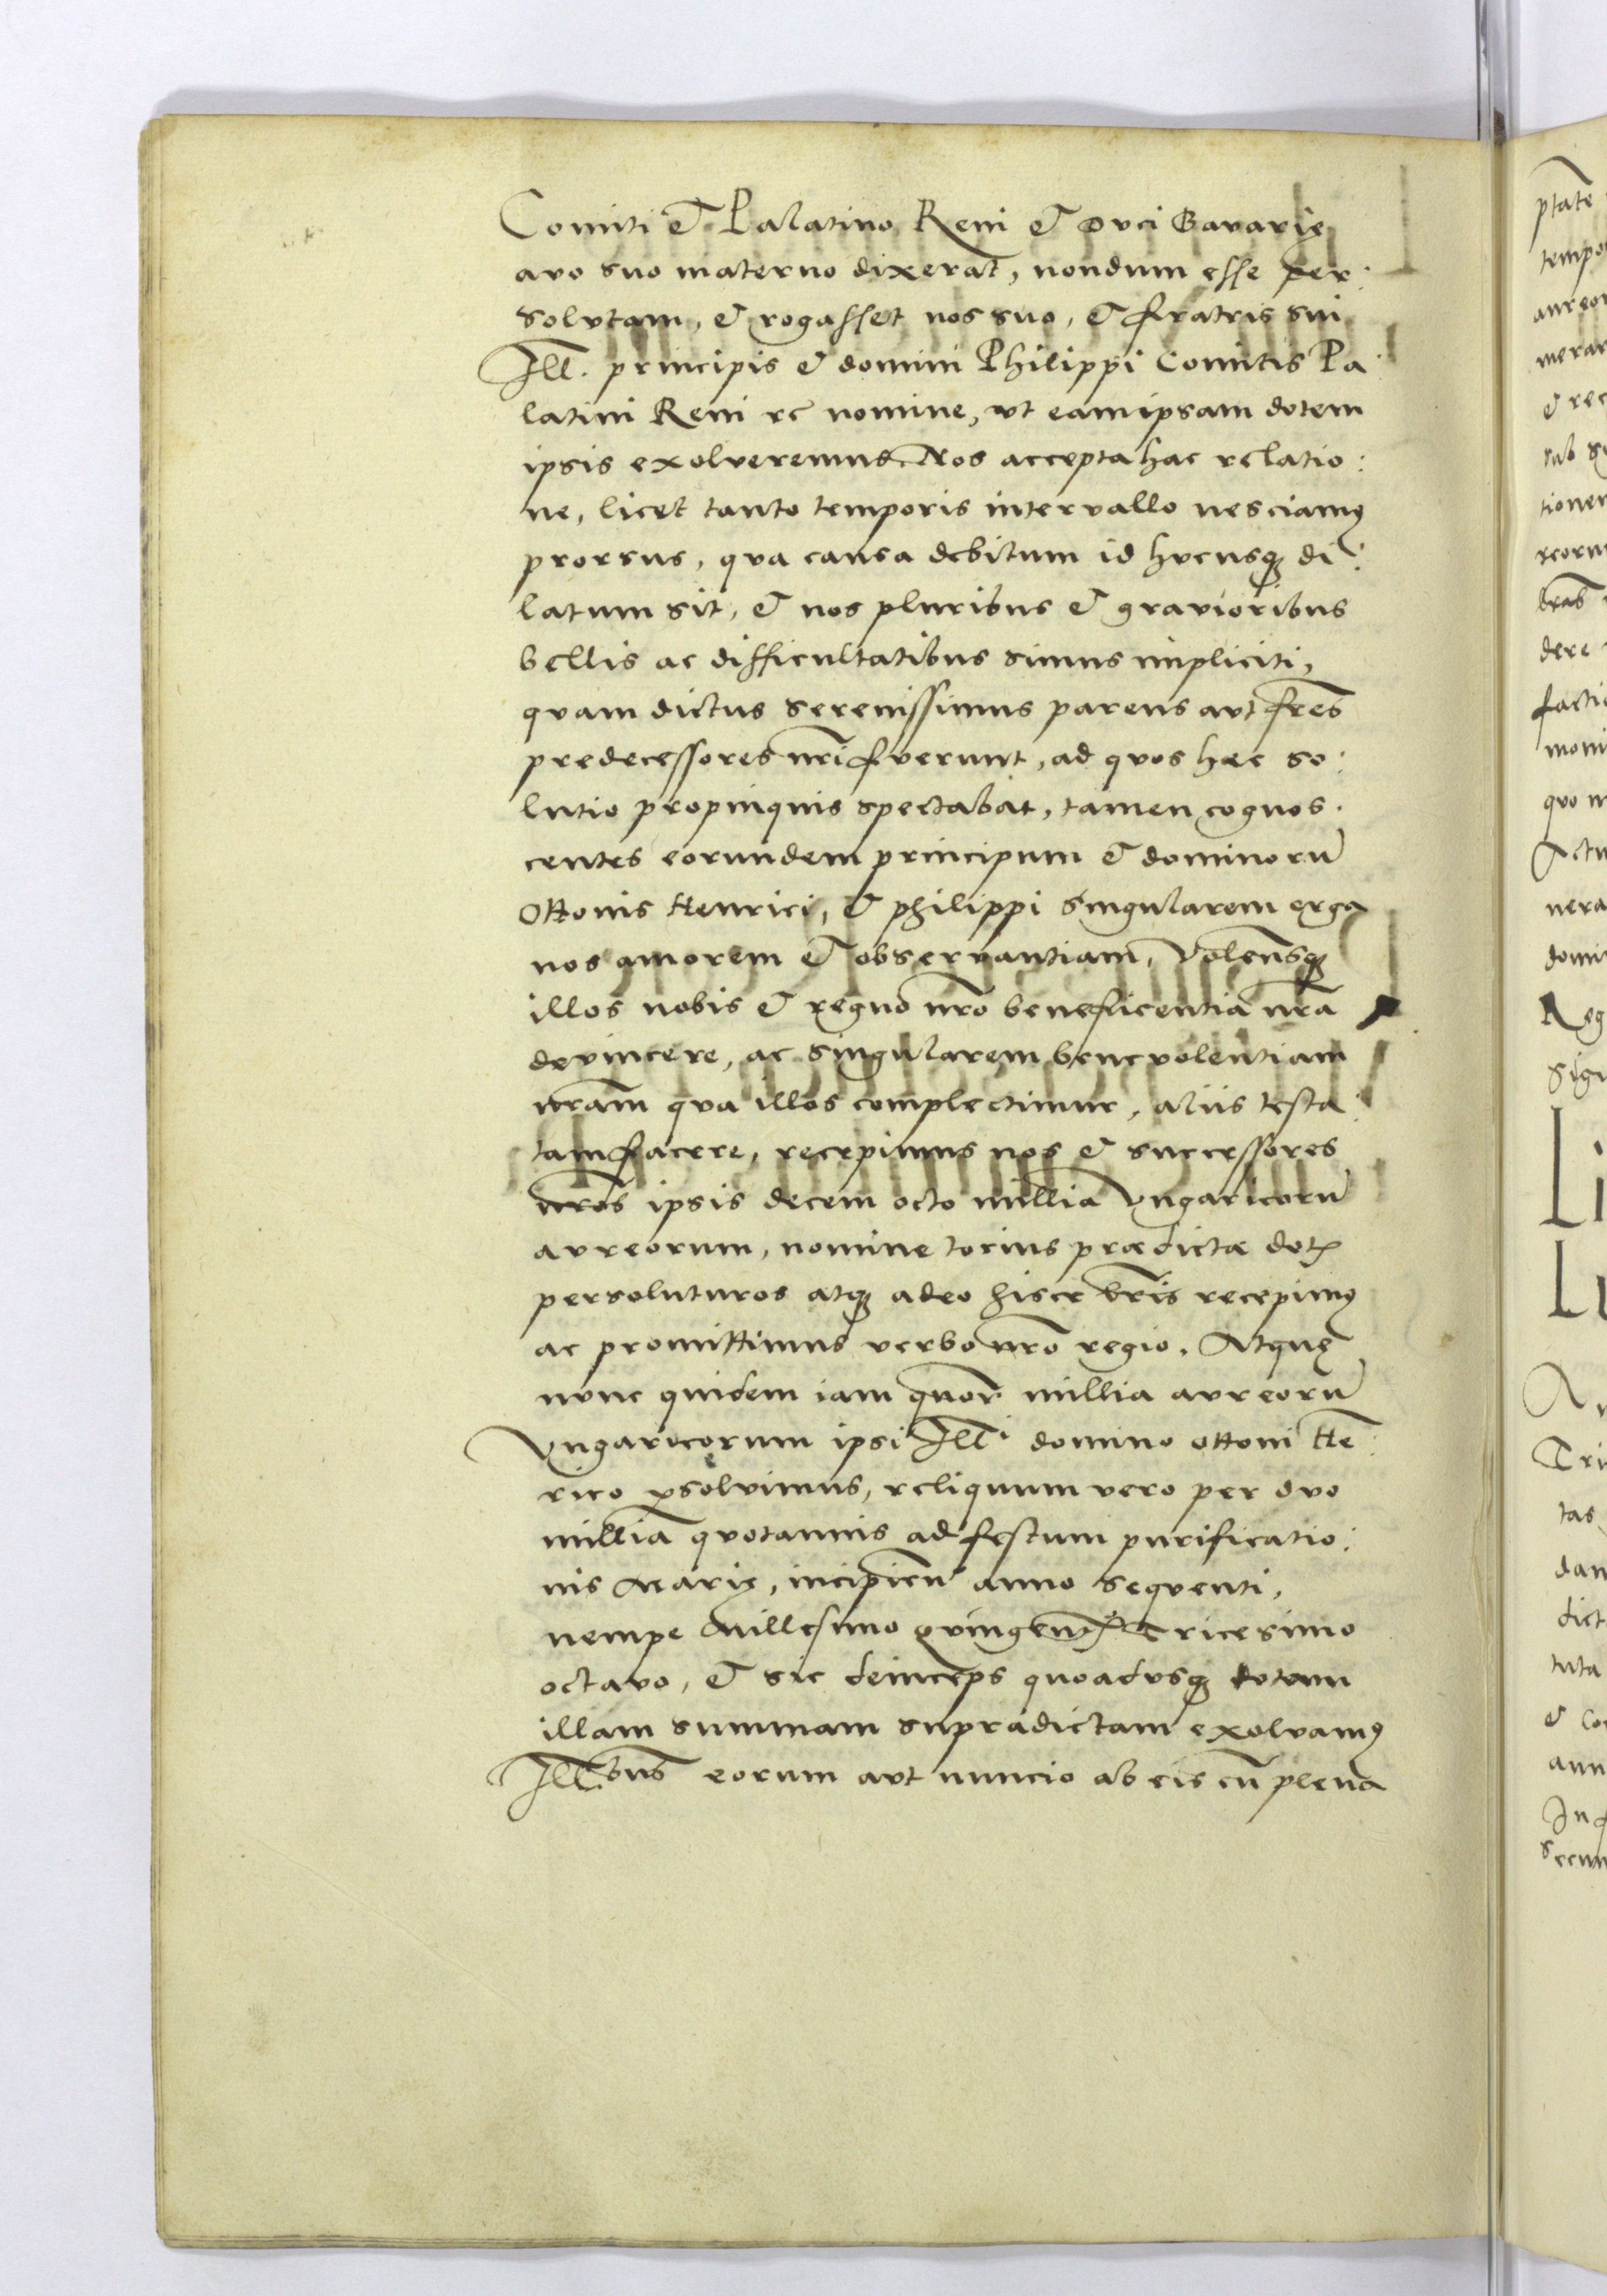 Comiti & Palatino Reni & Duci Bavarię
avo suo materno dixerat, nondum esse per:
solutam, & rogasset nos suo, & fratris sui
Ill. principis & domini Philippi Comitis Pa:
latini Reni rc nomine, ut eam ipsam dotem
ipsis exolveremus. Nos accepta hac relatio:
ne, licet tanto temporis intervallo nesciamꝰ
prorsus, qua causa debitum id hucusqꝫ di:
latum sit, & nos pluribus & gravioribus
bellis ac difficultatibus simus impliciti,
quam dictus serenissimus parens aut fr̄es
predecessores nr̄i fuerunt, ad quos hæc so:
lutio propinquis spectabat, tamen cognos:
centes eorundem principum & dominorū
Ottonis Henrici, & philippi singularem erga
nos amorem & observantiam, Volen̄sqꝫ
illos nobis & regno nr̄o beneficentia nr̄a
devincere, ac singularem benevolentiam
nr̄am qua illos complectimur, aliis testa:
tam facere, recepimus nos & successores
nr̄os ipsis decem octo millia Vngaricorū
aureorum, nomine tocius prædictæ dotꝭ
persoluturos atqꝫ adeo hisce l̄ris recepimꝰ
ac promittimus verbo nr̄o regio. Atquę
nunc quidem iam quor̄ millia aureorū
Vngaricorum ipsi Ill.ͥ domino Ottoni He:
rico ꝑsolvimus, reliquum vero per duo
millia quotannis ad festum purificatio:
nis Marię, incipien̄ anno sequenti,
nempe Millesimo quingen.ͫᵒ Tricesimo
octavo, & sic deinceps quoadusqꝫ totam
illam summam supradictam exolvamꝰ
Ill.bus eorum aut nuncio ab eis cū plena